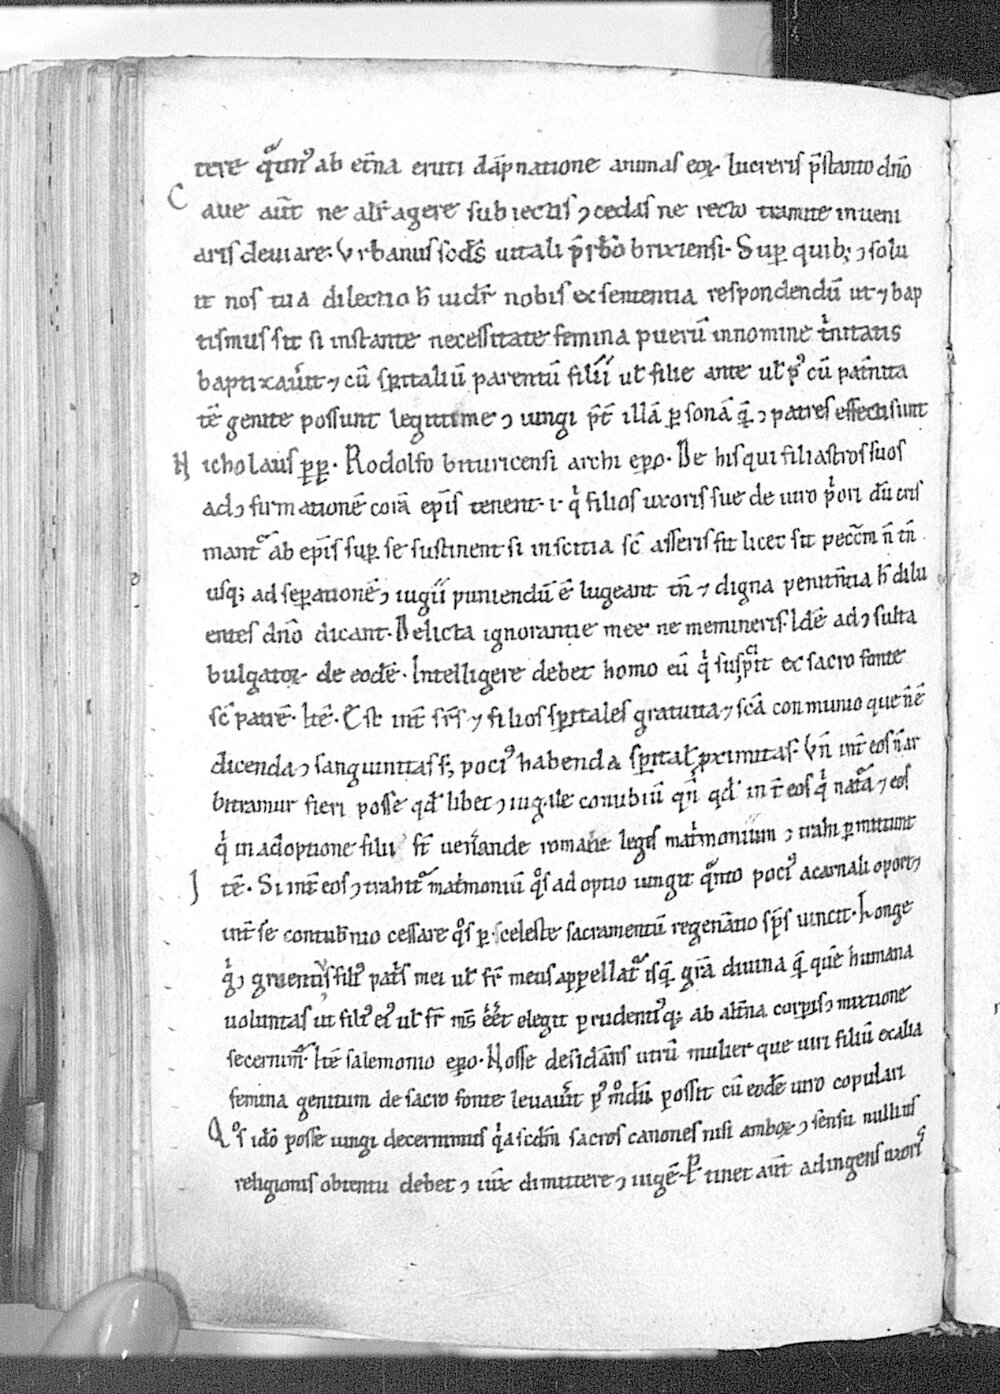 tere qͣtin᷒ ab et̄na eruti dāpnatione animas eoꝝ lucreris p̄stanto dn̄o
Caue aūt ne alit̓ agere subiectis ꝯcedas ne recto tramite inueni
aris deuiare. Vrbanus scd̄s uitali p̄rb̄o brixiensi. Suꝑ quibꝫ ꝯsolu
it nos tua dilectio h̄ uidet̓ nobis ex sententia respondendū ut ⁊ bap
tismus sit si instante necessitate femina puerū in nomine tⁱnitatis
baptixau̓it ⁊ cū sp̄italiū parentū filii ul̓ filie ante ul̓ p᷒ cū pat̓nita
tē genite possunt legittime ꝯiungi p̄t̄ illā ꝑsonā q̄ ꝯpatres effecti sunt
Nicholaus pp̄. Rodolfo bituricensi archi ep̄o. De his qui filiastros suos
ad ꝯfirmationē corā ep̄is tenent .i. qⁱ filios uxoris sue de uiro pⁱori dū cris
mant᷑ ab ep̄is suꝑ se sustinent si inscitia sc̄ asseris fit licet sit pecc̄m n̄ tn̄
usqꝫ ad seꝑationē ꝯiugii puniendū ē lugeant tn̄ ⁊ digna penitn̄tia h̄ dilu
entes dn̄o dicant. Delicta ignorantie mee ne memineris. Idē ad ꝯsulta
bulgaroꝝ de eodē. Intelligere debet homo eū qⁱ suscepit ex sacro fonte
sic̄ patrē. Itē. Est int̄ fr̄s ⁊ filios sp̄itales gratuita ⁊ sc̄a conmunio que n̄ ē
dicenda ꝯsanguinitas sꝫ poci᷒ habenda sp̄ital̓ ꝓximitas. Vn̄ int̄ eos n̄ ar
bitramur fieri posse qd̓libet ꝯiugale conubiū qn̄ qd̓ int̄ eos qⁱ natͣa ⁊ eos
qⁱ in adoptione filii st̄ uen̓ande romane leges mat̓monium ꝯtrahi ꝑmittunt
Itē. Si int̄ eos ꝯtrahit᷑ mat̓moniū qͦs adoptio iungit qͣnto poci᷒ a carnali oportꝫ
int̄ se contub̓nio cessare qͦs ꝑ celeste sacramentū regen̓atio sp̄s uincit. Longe
 ꝯgruenti᷒ fili᷒ pat̓s mei ul̓ fr̄ meus appellat᷑ isqꝫ gr̄a diuina qͣ quē humana
uoluntas ut fili᷒ ei᷒ ul̓ fr̄ m̄s eēt elegit prudenti᷒qꝫ ab alt̓na corꝑis ꝯmixtione
secernim᷒. Itē salemonio ep̄o. Nosse desid̓ans utrū mulier que uiri filiū ex alia
femina genitum de sacro fonte leuau̓it p᷒ mͦdū possit cū eodē uiro copulari
Qͦs idō posse iungi decernimus qⁱa scd̄m sacros canones nisi amboꝝ ꝯsensu nullius
religionis obtentu debet ꝯiūx dimittere ꝯiugē. Ptinet aūt ad ingens uxori᷒